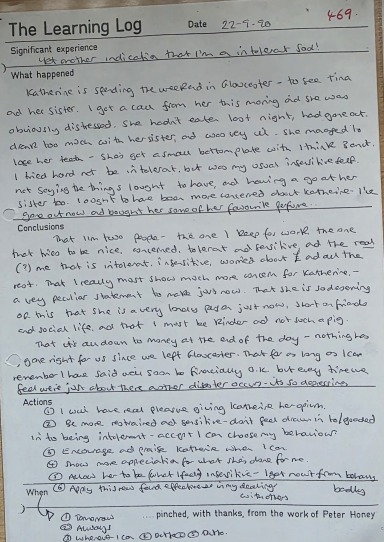 469.
The Learning Log Date 22-9-90
Significant experience
Yet another indication that I'm a intolerant sod!
What happened
Katherine is spending the weekend in Gloucester - to see Tina
and her sister. I got a call from her this morning and she was
obviously distressed. She hadn't eaten last night, had gone out,
drank too much with her sister, and was very ill. She managed to
lose her teeth - she's got a small bottom plate with I think 3 on it.
I tried hard not be intolerant, but was my usual insensitive self,
not saying the things I ought to have, and having a go at her
sister too. I ought to have been more concerned about Katherine - like
gone out now and bought her some of her favourite perfume..
Conclusions
That I'm two people - the one I keep for work, the one
that tries to be nice, concerned, tolerant and sensitive, and the real
(?) me that is intolerant, insensitive, worried about £ and all the
rest. That I really must show much more concern for Katherine, -
a very peculiar statement to make just now. That she is so deserving
of this that she is a very lonely person just now, short on friends
and social life, and that I must be kinder and not such a pig.
That it's all down to money at the end of the day - nothing has
gone right for us since we left Gloucester. That for as long as I can
remember I have said we'll soon be financially O.K. but every time we
feel we're just about there another disaster occurs - it's so depressing
Actions
① I will have real pleasure giving Katherine her
② Be more restrained and sensitive - don't feel drawn in to/goaded
in to being intolerant - accept I can choose my behaviour
③ Encourage and praise Katherine when I can
④ Show more appreciation for what she's done for me.
⑤ Allow her to be (what I feel) insensitive - I get nowt from behaving
badly
⑥ Apply this new found effectiveness in my dealings
with others
When
① Tomorrow
② Always
③ Whenever I can ④ Ditto ⑤ Ditto.
pinched, with thanks, from the work of Peter Honey